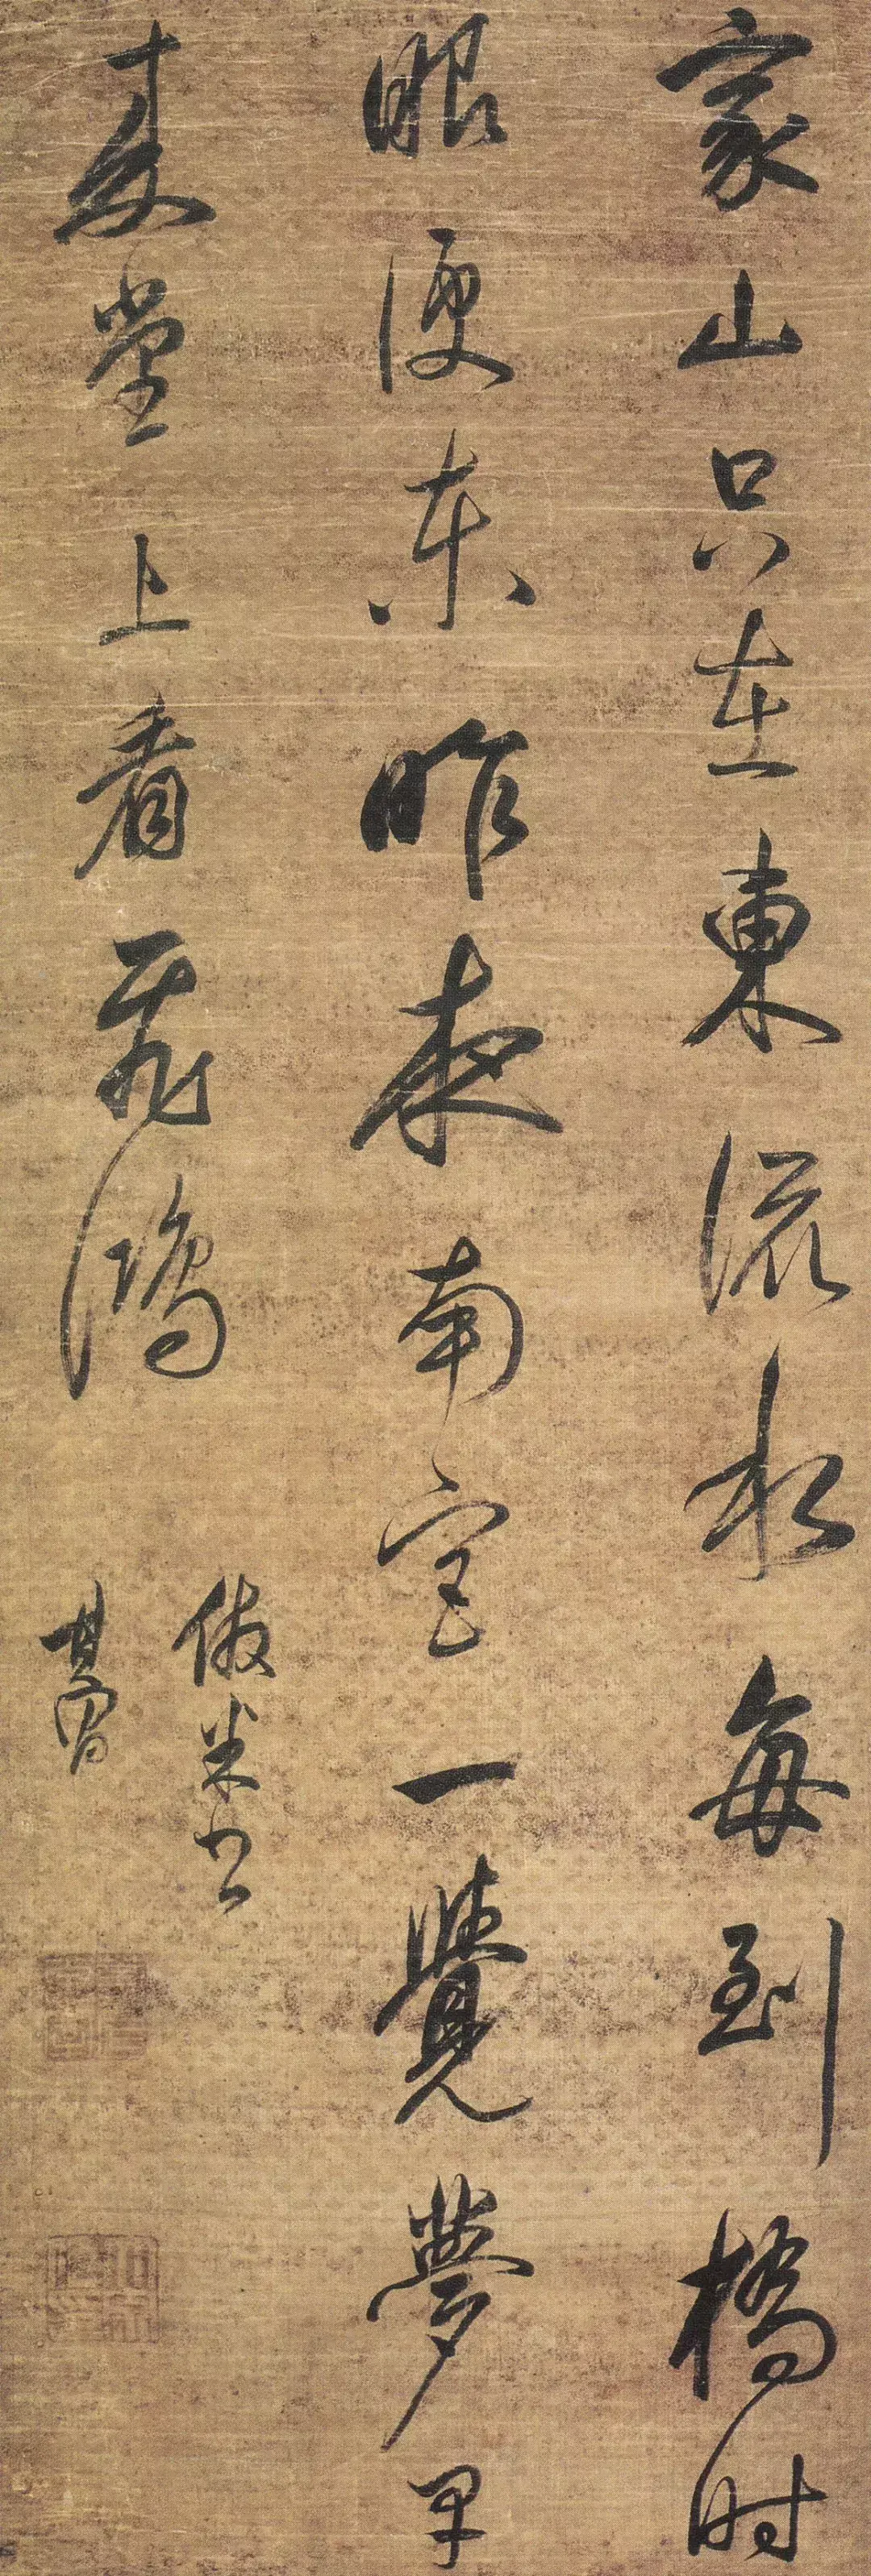 家山只在東流水每到橋時
眼便東昨夜南宮一覺夢早
堂上看飛鴻
倣米書
其昌